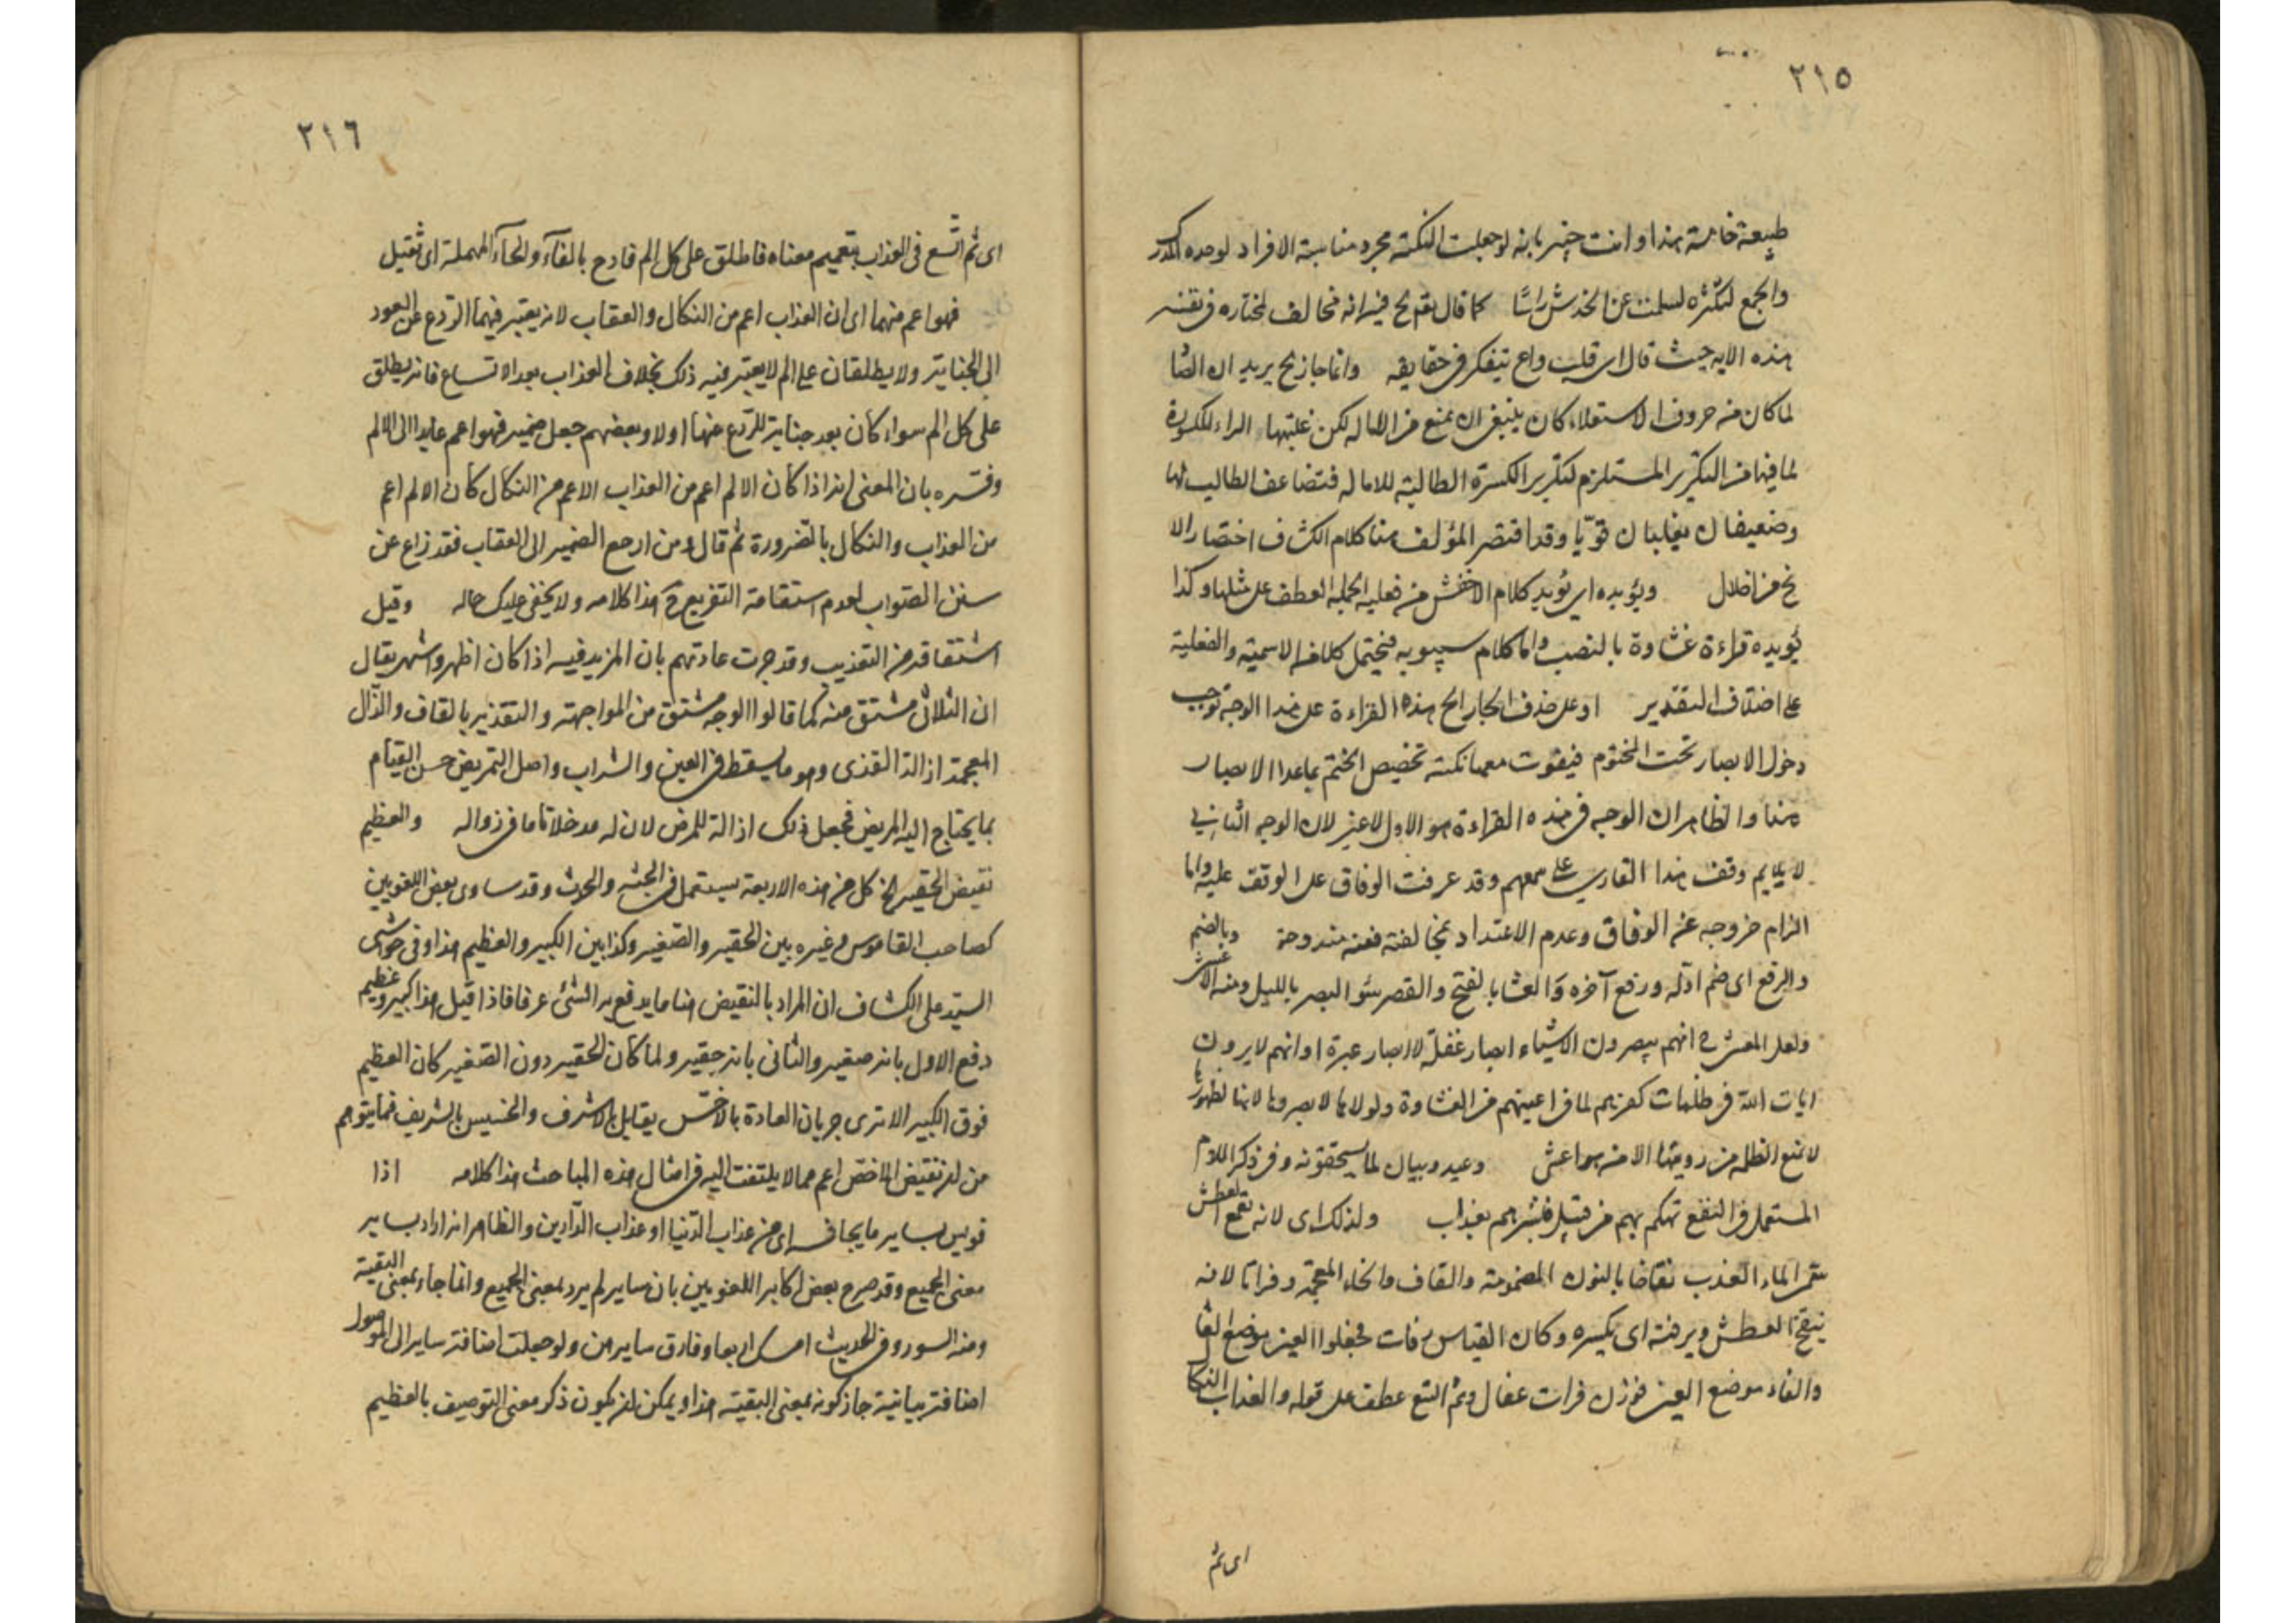 ٢١٥
طبيعة خامسة هذا وانت خبير بانه لو جعلت النكتة مجرد مناسبة الافراد لوحده المدرك
والجمع لتكثره لسلمت عن الخدش راسًا كما قال بقوله الخ فيه انه مخالف لمختاره في تفسير
هذه الايه حيث قال اي قلب واع يتفكر في حقايقه وانما جاز الخ يريد ان الصا
لما كان من حروف الاستعلاء كان ينبغي ان يمنع من الاماله لكن غلبتها الراء المكسورة
لما فيها من التكرير المستلزم لتكرير الكسرة الطالبة للاماله فتضاعف الطالب لها
وضعيفان يغلبان قويّا وقد اقتصر المؤلف هنا كلام الكشاف اختصارا لا
يخ من اخلال ويؤيده اي يؤيد كلام الاخفش من فعليه الجمله العطف على مثلها وكذا
يؤيده قراءة غشاوة بالنصب واما كلام سيبويه فيحتمل كلا من الاسمية والفعلية
على اختلاف التقدير او على حذف الجار الخ هذه القراءة على هذا الوجه توجب
دخول الابصار تحت المختوم فيفوت معها نكتة تخصيص الختم بما عدا الابصار
هنا والظاهر ان الوجه في هذه القراءة هو الاول لا غير لان الوجه الثاني
لا يلايم وقف هذا القاري على سمعهم وقد عرفت الوفاق على الوقف عليه واما
الزام خروجه عن الوفاق وعدم الاعتداد بمخالفته فعنه مندوحة وبالضم
والرفع اي ضم اوّله ورفع آخره والعشا بالفتح والقصر سؤ البصر بالليل ومنه الاعشى
ولعل المعنى ح انهم يبصرون الاشياء ابصار غفلة لا ابصار عبرة او انهم لا يرون
ايات الله في ظلمات كفرهم لما في اعينهم من الغشاوة ولولاها لابصروها لانها لظهورها
لا تمنع الظلمه من رويتها الا من هو اعشى وعيد وبيان لما يستحقونه وفي ذكر اللام
المستعمل في النفع تهكم بهم من قبيل فبشرهم بعذاب ولذلك اي لانه يقمع العطش
سمى الماء العذب نقاخا بالنون المضمومة والقاف والخاء المعجمة وفراتا لانه
ينقخ العطش ويرفته اي يكسره وكان القياس رفات فجعلوا العين موضع الفا
والفاء موضع العين فوزن فرات عفال وثم اتسع عطف على قوله والعذاب النكا
اى ثم
٢١٦
اى ثم اتّسع فى العذاب بتعميم معناه فاطلق على كل الم فادح بالفآء والحآء المهملة اى ثقيل
فهو اعم منهما اى ان العذاب اعم من النكال والعقاب لانه يعتبر فيهما الرّدع عن العود
الى الجناية ولا يطلقان على الم لا يعتبر فيه ذلك بخلاف العذاب بعد الاتساع فانه يطلق
على كل الم سواء كان بعد جناية للرّدع عنها اولا وبعضهم جعل ضمير فهو اعم عايدا الى الالم
وفسّره بان المعنى انه اذا كان الالم اعم من العذاب الاعم من النكال كان الالم اعم
من العذاب والنكال بالضرورة ثم قال ومن ارجع الضمير الى العقاب فقد زاغ عن
سنن الصّواب لعدم استقامة التفريع ح هذا كلامه ولا يخفى عليك حاله وقيل
اشتقاقه من التعذيب وقد جرت عادتهم بان المزيد فيه اذا كان اظهر واشهر يقال
ان الثلاثى مشتق منه كما قالوا الوجه مشتق من المواجهة والتقذير بالقاف والذّال
المعجمة ازالة القذى وهو ما يسقط فى العين والشراب واصل التمريض حسن القيام
بما يحتاج اليه المريض فجعل ذلك ازالة للمرض لان له مدخلا تاما فى زواله والعظيم
نقيض الحقير الخ كل من هذه الاربعة يستعمل فى الجثه والحدث وقد ساوى بعض اللغويين
كصاحب القاموس وغيره بين الحقير والصّغير وكذا بين الكبير والعظيم هذا وفى حواشى
السيّد على الكشاف ان المراد بالنقيض هنا ما يدفع به الشئ عرفا فاذا قيل هذا كبير وعظيم
دفع الاول بانه صغير والثانى بانه حقير ولما كان الحقير دون الصّغير كان العظيم
فوق الكبير الا ترى جريان العادة بالاخسّ يقابل بالاشرف والخسيس بالشريف فما يتوهم
من ان نقيض الاخصّ اعم مما لا يلتفت اليه فى امثال هذه المباحث هذا كلامه اذا
قويس بساير ما يجانسه اى من عذاب الدّنيا او عذاب الدّارين والظاهر انه اراد بساير
معنى الجميع وقد صرح بعض اكابر اللغويين بان ساير لم يرد بمعنى الجميع وانما جاء بمعنى البقية
ومنه السور وفى الحديث امسك اربعا وفارق سايرهن ولو جعلت اضافة ساير الى الموصول
اضافة بيانية جاز كونه بمعنى البقية هذا ويمكن ان يكون ذكر معنى التوصيف بالعظيم